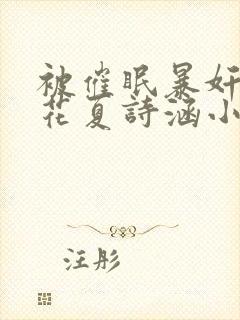 被催眠暴奸
花夏詩涵小
汪彤